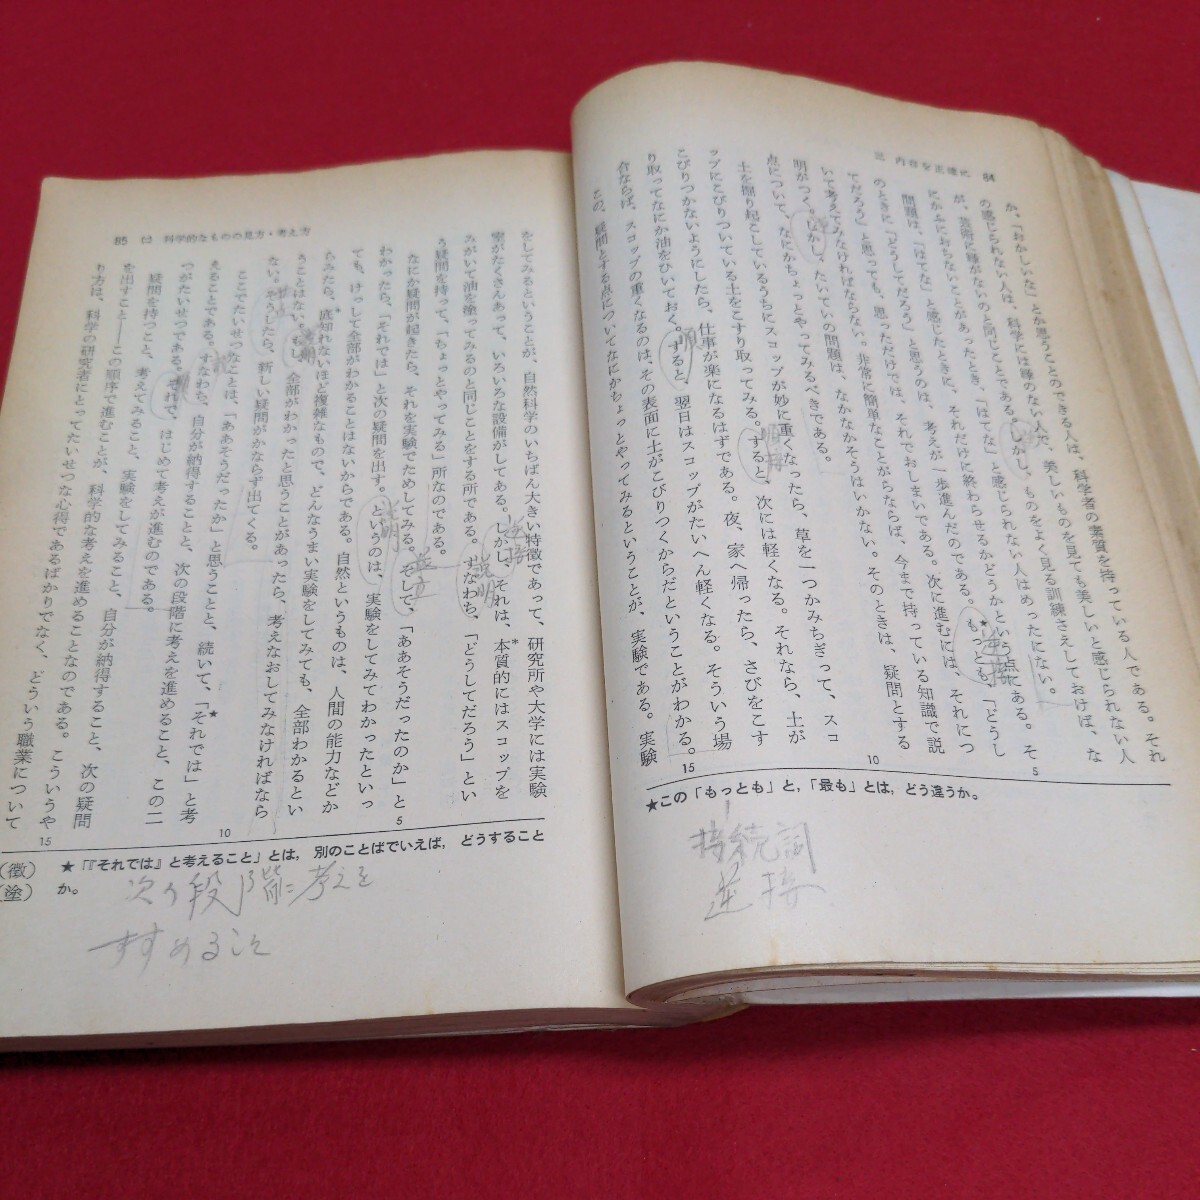 三 内容を正確に 84
か、「おかしいな」とか思うことのできる人は、科学者の素質を持っている人である。それ
の感じられない人は、科学には縁のない人で、美しいものを見ても美しいと感じられない人
が、芸術に縁がないのと同じことである。しかし、ものをよく見る訓練さえしておけば、な
にかふにおちないことがあったとき、「はてな」と感じられない人はめったにない。
問題は、「はてな」と感じたときに、それだけに終わらせるかどうかという点にある。そ
のときに「どうしてだろう」と思うのは、考えが一歩進んだのである。もっとも、「どうし
てだろう」と思っても、思っただけでは、それでおしまいである。次に進むには、それにつ
いて考えてみなければならない。非常に簡単なことがらならば、今まで持っている知識で説
明がつく。しかし、たいていの問題は、なかなかそうはいかない。そのときは、疑問とする
点について、なにかちょっとやってみるべきである。
土を掘り起こしているうちにスコップが妙に重くなったら、草を一つかみちぎって、スコ
ップにこびりついている土をこすり取ってみる。すると、次には軽くなる。それなら、土が
こびりつかないようにしたら、仕事が楽になるはずである。夜、家へ帰ったら、さびをこす
り取ってなにか油をひいておく。すると、翌日はスコップがたいへん軽くなる。そういう場
合ならば、スコップの重くなるのは、その表面に土がこびりつくからだということがわかる。
この、疑問とする点についてなにかちょっとやってみるということが、実験である。実験
5
10
15
★この「もっとも」と,「最も」とは,どう違うか。
接続詞
逆接
逆接
順接
順
85 (2) 科学的なものの見方・考え方
をしてみるということが、自然科学のいちばん大きい特徴であって、研究所や大学には実験
室がたくさんあって、いろいろな設備がしてある。しかし、それは、本質的にはスコップを
みがいて油を塗ってみるのと同じことをする所である。すなわち、「どうしてだろう」とい
う疑問を持って、「ちょっとやってみる」所なのである。
なにか疑問が起きたら、それを実験でためしてみる。そして、「ああそうだったのか」と
わかったら、「それでは」と次の疑問を出す。というのは、実験をしてみてわかったといっ
ても、けっして全部がわかることはないからである。自然というものは、人間の能力などか
らみたら、底知れないほど複雑なもので、どんなうまい実験をしてみても、全部わかるとい
うことはない。もし、全部がわかったと思うことがあったら、考えなおしてみなければなら
ない。そうしたら、新しい疑問がかならず出てくる。
ここでたいせつなことは、「ああそうだったか」と思うことと、続いて、「それでは」と考
えることである。すなわち、自分が納得することと、次の段階に考えを進めること、この二
つがたいせつである。それで、はじめて考えが進むのである。
疑問を持つこと、考えてみること、実験をしてみること、自分が納得すること、次の疑問
を出すこと――この順序で進むことが、科学的な考えを進めることなのである。こういうや
り方は、科学の研究者にとってたいせつな心得であるばかりでなく、どういう職業について
5
10
15
逆接
説明
並立
説明
(徴)
(塗)
★「『それでは』と考えること」とは,別のことばでいえば,どうすること
か。
次の段階に考えを
すすめること